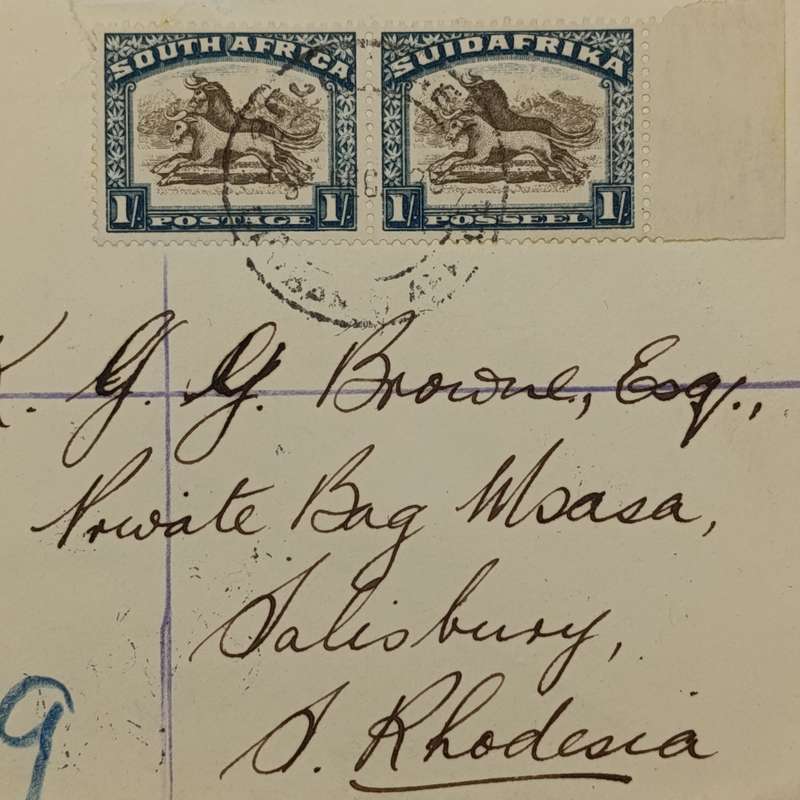 SOUTH AFRICA SUIDAFRIKA
1/- POSTAGE 1/- 1/- POSSEEL 1/-
K. G. G. Browne, Esq.,
Private Bag Msasa,
Salisbury,
S. Rhodesia
9